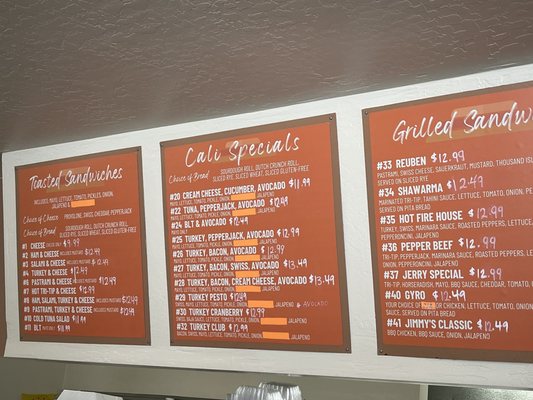 Toasted Sandwiches
INCLUDES MAYO, LETTUCE, TOMATO, PICKLES, ONION,
JALAPENO
Choice of Cheese PROVOLONE, SWISS, CHEDDAR, PEPPERJACK
Choice of Bread SOURDOUGH ROLL, DUTCH CRUNCH ROLL,
SLICED RYE, SLICED WHEAT, SLICED GLUTEN-FREE
#1 CHEESE
#2 HAM & CHEESE
#3 SALAMI & CHEESE
#4 TURKEY & CHEESE
#5 PASTRAMI & CHEESE
#6 TRI-TIP & CHEESE
#7 HOT TRI-TIP & CHEESE
#8 HAM, SALAMI, TURKEY & CHEESE
#9 PASTRAMI, TURKEY & CHEESE
#10 COLD TUNA SALAD
#11 BLT
Cali Specials
Choice of Bread SOURDOUGH ROLL, DUTCH CRUNCH ROLL,
SLICED RYE, SLICED WHEAT, SLICED GLUTEN-FREE
#20 CREAM CHEESE, CUCUMBER, AVOCADO $11.99
MAYO, LETTUCE, TOMATO, PICKLE, ONION, JALAPENO
#22 TUNA, PEPPERJACK, AVOCADO $12.49
MAYO, LETTUCE, TOMATO, PICKLE, ONION, JALAPENO
#24 BLT & AVOCADO $12.49
MAYO ONLY
#25 TURKEY, PEPPERJACK, AVOCADO $12.99
MAYO, LETTUCE, TOMATO, PICKLE, ONION, JALAPENO
#26 TURKEY, BACON, AVOCADO $12.99
MAYO, LETTUCE, TOMATO, PICKLE, ONION, JALAPENO
#27 TURKEY, BACON, SWISS, AVOCADO $13.49
MAYO, LETTUCE, TOMATO, PICKLE, ONION, JALAPENO
#28 TURKEY, BACON, CREAM CHEESE, AVOCADO $13.49
MAYO, LETTUCE, TOMATO, PICKLE, ONION, JALAPENO
#29 TURKEY PESTO
JALAPENO + AVOCADO
#30 TURKEY CRANBERRY $12.99
SWISS, MAYO, LETTUCE, TOMATO, PICKLE, ONION, JALAPENO
#32 TURKEY CLUB $12.99
SWISS, BACON, MAYO, LETTUCE, TOMATO, PICKLE, ONION, JALAPENO
Grilled Sandw
#33 REUBEN $12.99
PASTRAMI, SWISS CHEESE, SAUERKRAUT, MUSTARD, THOUSAND ISL
SERVED ON SLICED RYE
#34 SHAWARMA $12.49
MARINATED TRI-TIP, TAHINI SAUCE, LETTUCE, TOMATO, ONION, PE
SERVED ON PITA BREAD
#35 HOT FIRE HOUSE $12.99
TURKEY, SWISS, MARINARA SAUCE, ROASTED PEPPERS, LETTUCE,
PEPPERONCINI, JALAPENO
#36 PEPPER BEEF $12.99
TRI-TIP, PEPPERJACK, MARINARA SAUCE, ROASTED PEPPERS, LETTU
ONION, PEPPERONCINI, JALAPENO
#37 JERRY SPECIAL $12.99
TRI-TIP, HORSERADISH, MAYO, BBQ SAUCE, CHEDDAR, TOMATO, ON
#40 GYRO $12.49
YOUR CHOICE OF CHICKEN, LETTUCE, TOMATO, ONION
SAUCE, SERVED ON PITA BREAD
#41 JIMMY'S CLASSIC $12.49
BBQ CHICKEN, BBQ SAUCE, ONION, JALAPENO